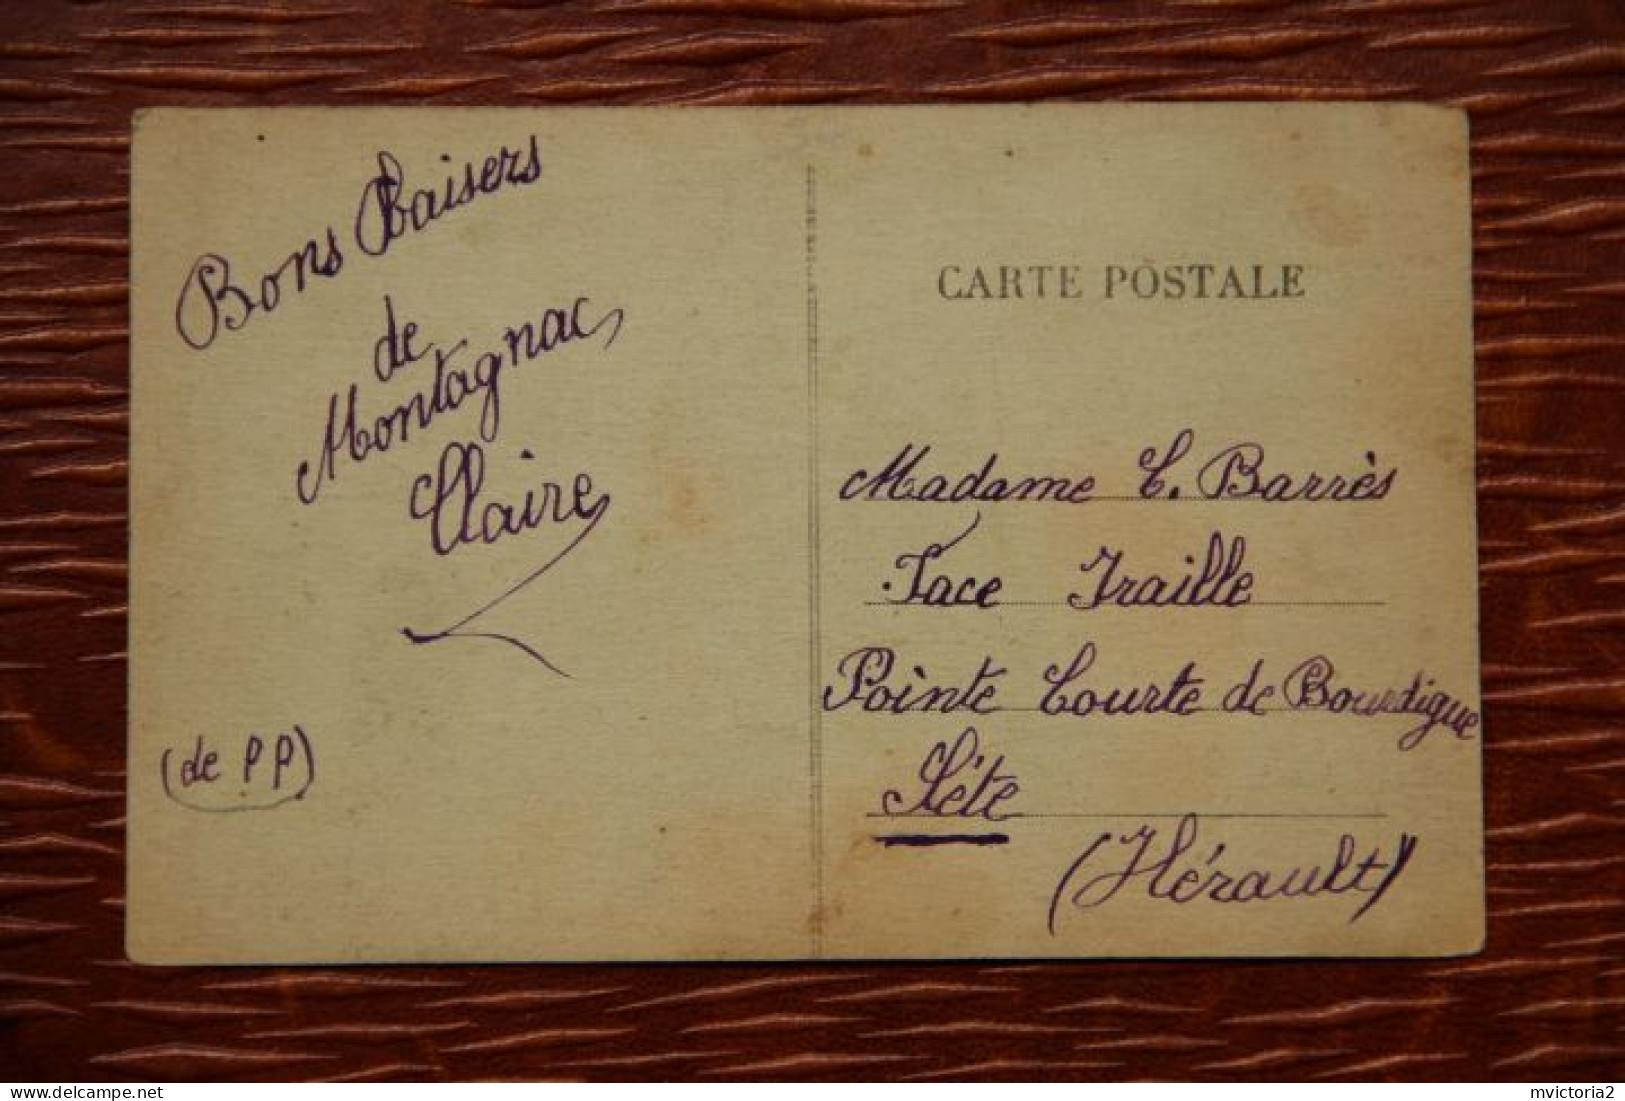 Bons Baisers
de
Montagnac
Claire
(de PP)
CARTE POSTALE
Madame C. Barrès
Face Traille
Pointe Courte de Bourdigue
Sète
(Hérault)
mvictoria2